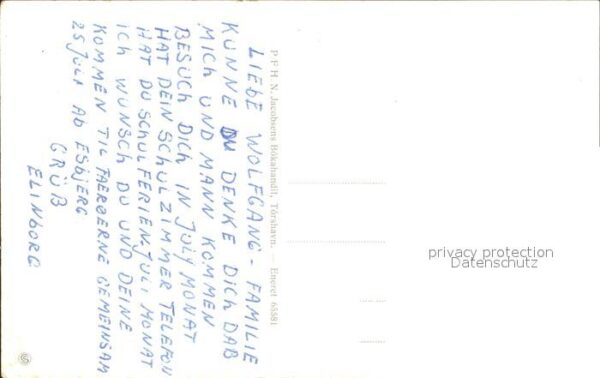 LIEBE WOLFGANG - FAMILIE
KUNNE DU DENKE DICH DAB
MICH UND MANN KOMMEN
BESUCH DICH IN JULY MONAT
HAT DEIN SCHULZIMMER TELEFON
HAT DU SCHULFERIEN JULI MONAT
ICH WUNSCH DU UND DEINE
KOMMEN TIL FAERØERNE GEMEINSAM
25 JULI AB ESBJERG
GRÜß
ELINBORG
P F H N. Jacobsens Bókahandil, Tórshavn. — Eneret 65581
privacy protection
Datenschutz